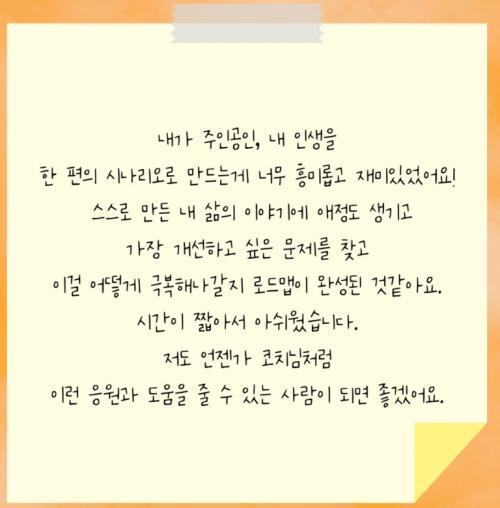 내가 주인공인, 내 인생을
한 편의 시나리오로 만드는게 너무 흥미롭고 재미있었어요!
스스로 만든 내 삶의 이야기에 애정도 생기고
가장 개선하고 싶은 문제를 찾고
이걸 어떻게 극복해나갈지 로드맵이 완성된 것같아요.
시간이 짧아서 아쉬웠습니다.
저도 언젠가 코치님처럼
이런 응원과 도움을 줄 수 있는 사람이 되면 좋겠어요.